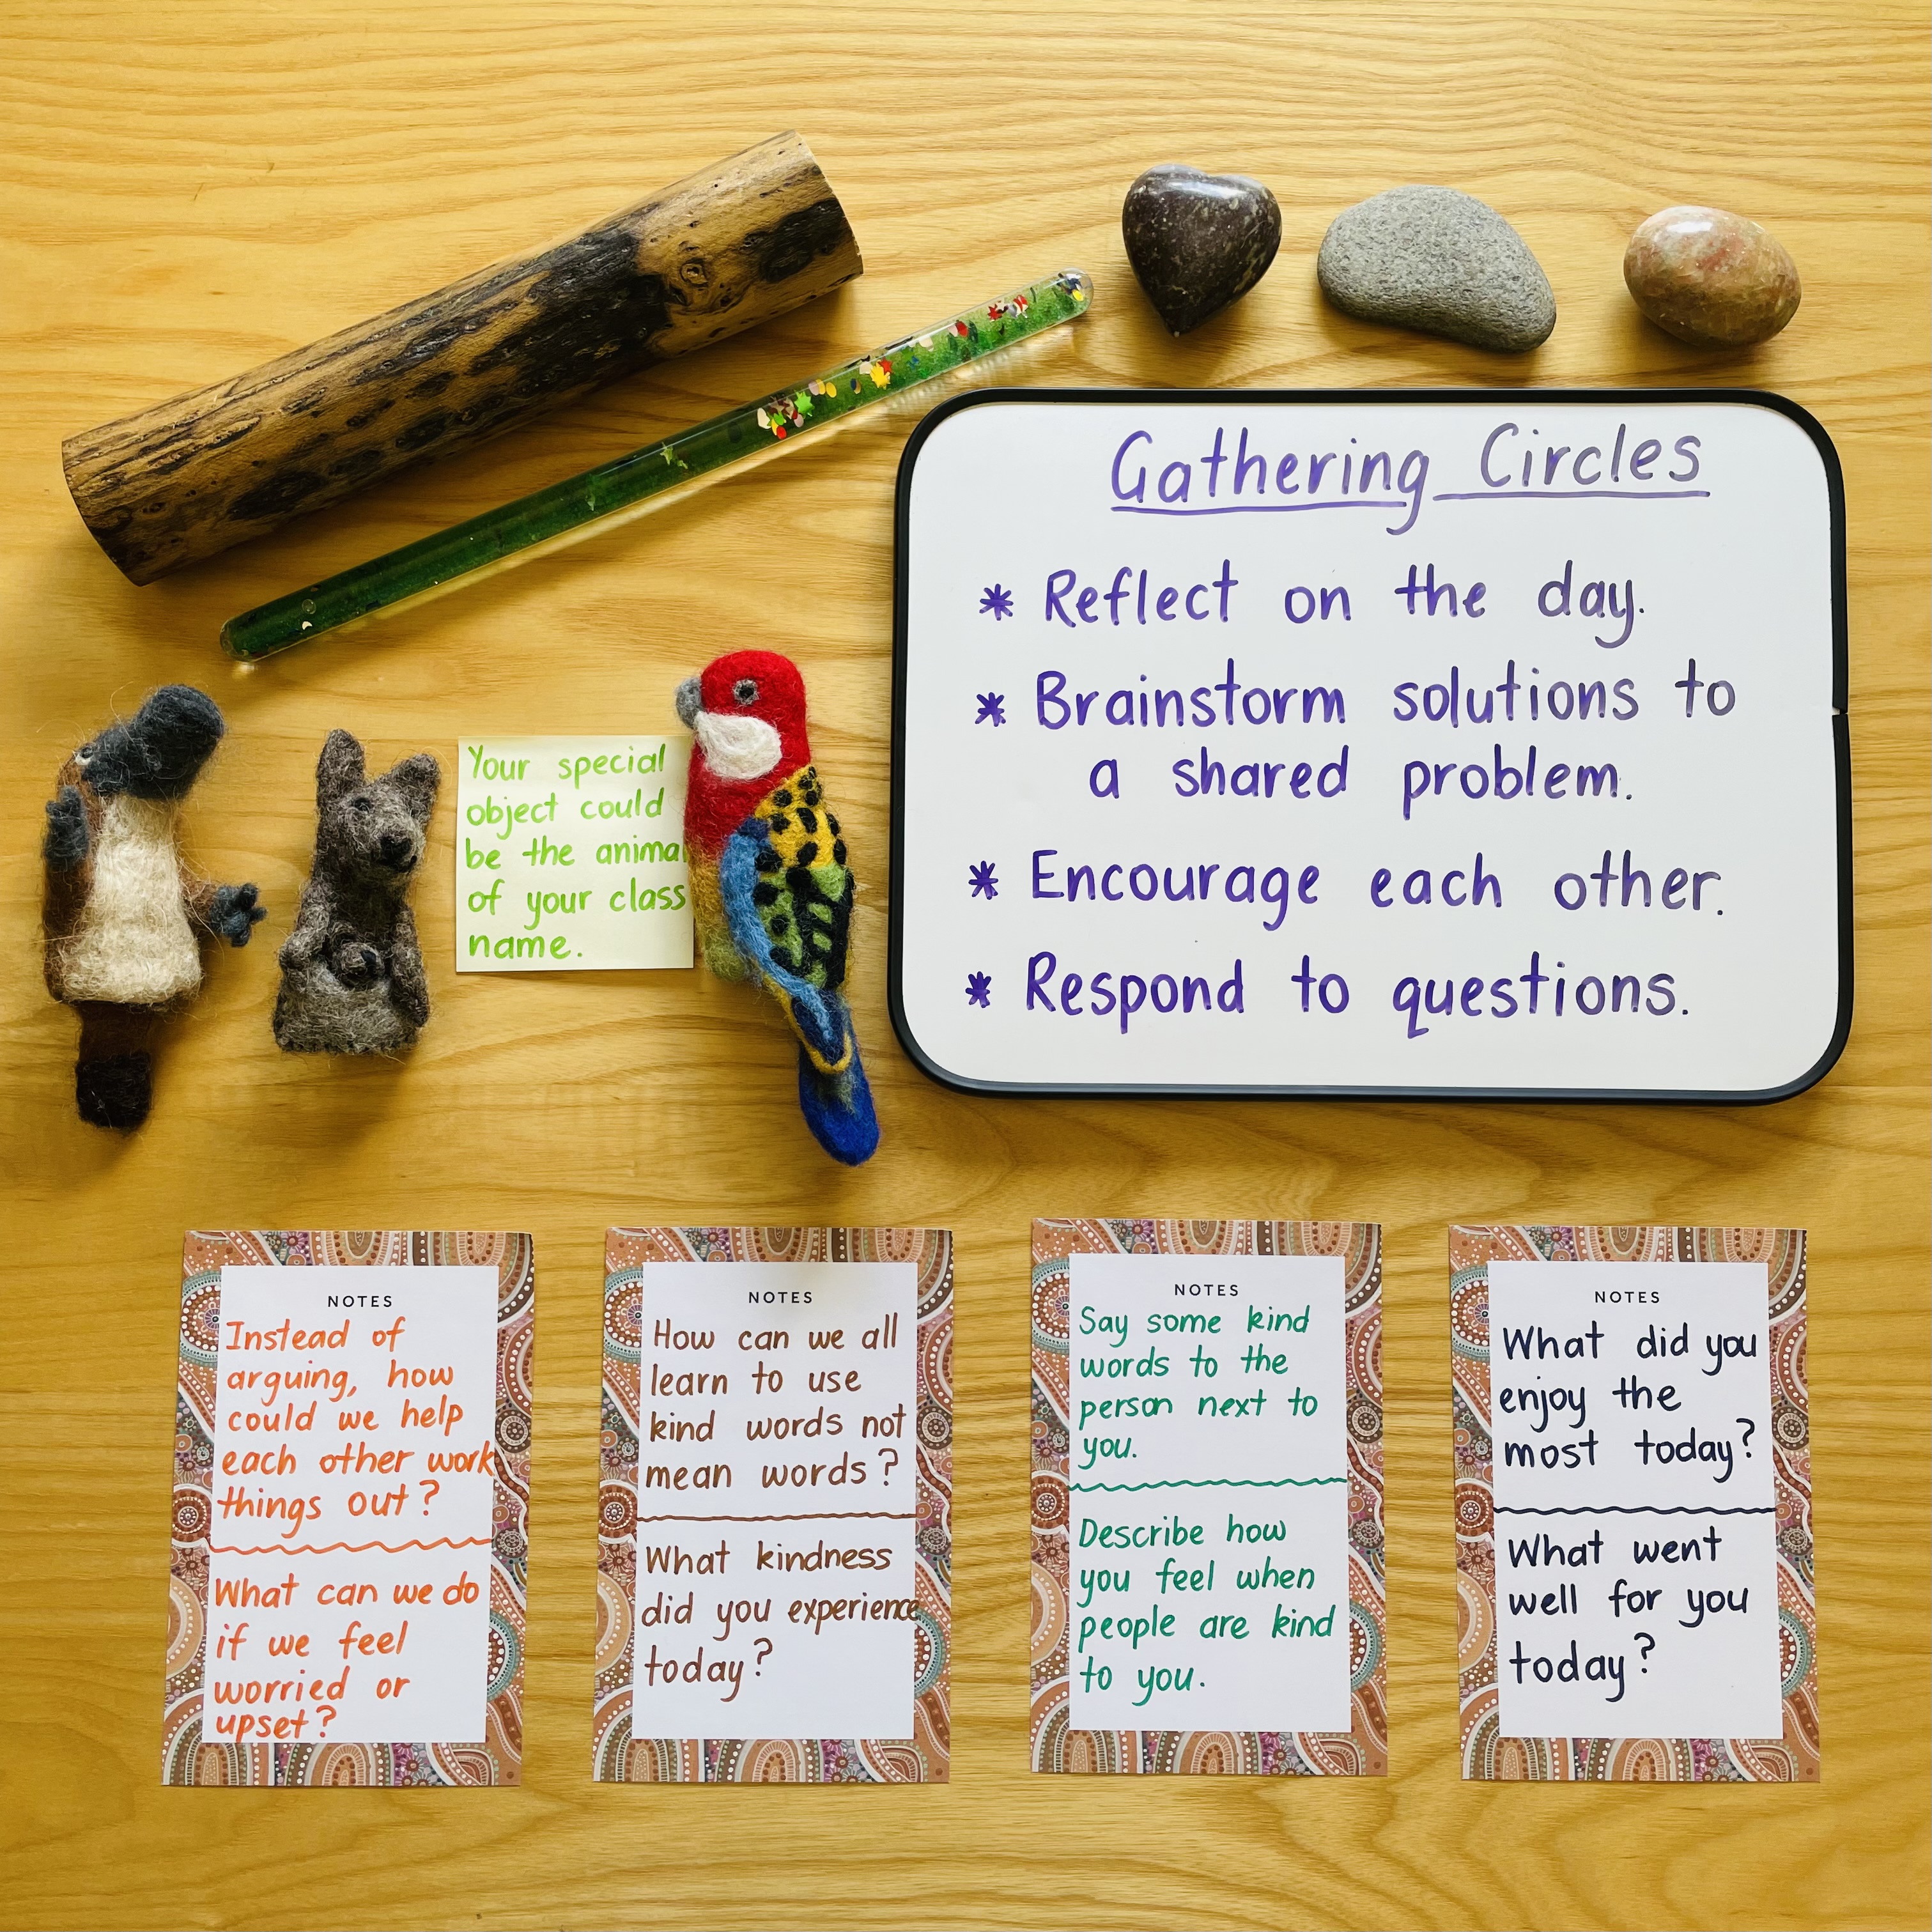 Gathering Circles
* Reflect on the day.
* Brainstorm solutions to
a shared problem.
* Encourage each other.
* Respond to questions.
Your special
object could
be the animal
of your class
name.
NOTES
Instead of
arguing, how
could we help
each other work
things out?
What can we do
if we feel
worried or
upset?
NOTES
How can we all
learn to use
kind words not
mean words?
What kindness
did you experience
today?
NOTES
Say some kind
words to the
person next to
you.
Describe how
you feel when
people are kind
to you.
NOTES
What did you
enjoy the
most today?
What went
well for you
today?